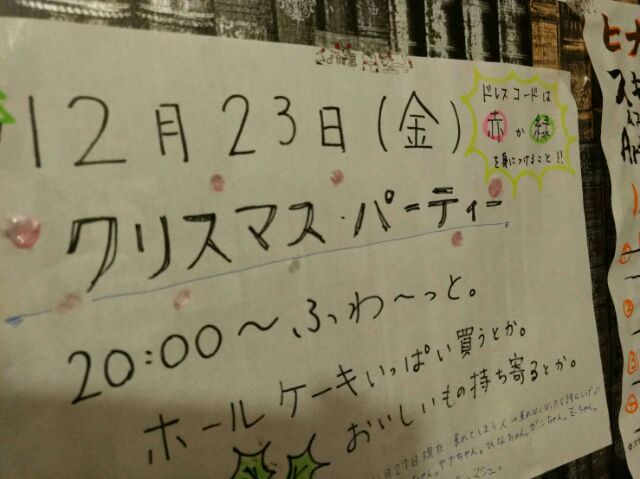 12月23日(金)
ドレスコードは
赤か緑
を身につけること!!
クリスマス・パーティー
20:00〜ふわ〜っと。
ホールケーキいっぱい買うとか。
おいしいもの持ち寄るとか。
ヒナ
スキ
Ar